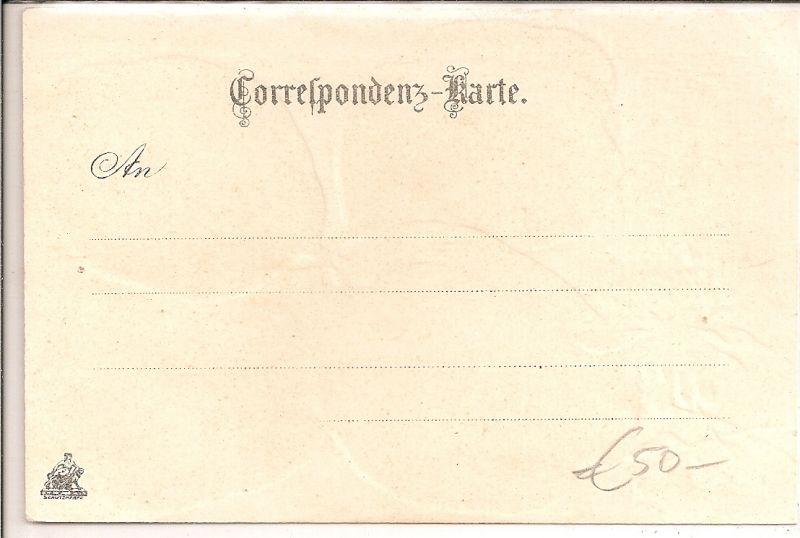 Correſpondenz-Karte.
An
£50-
SCHUTZMARKE